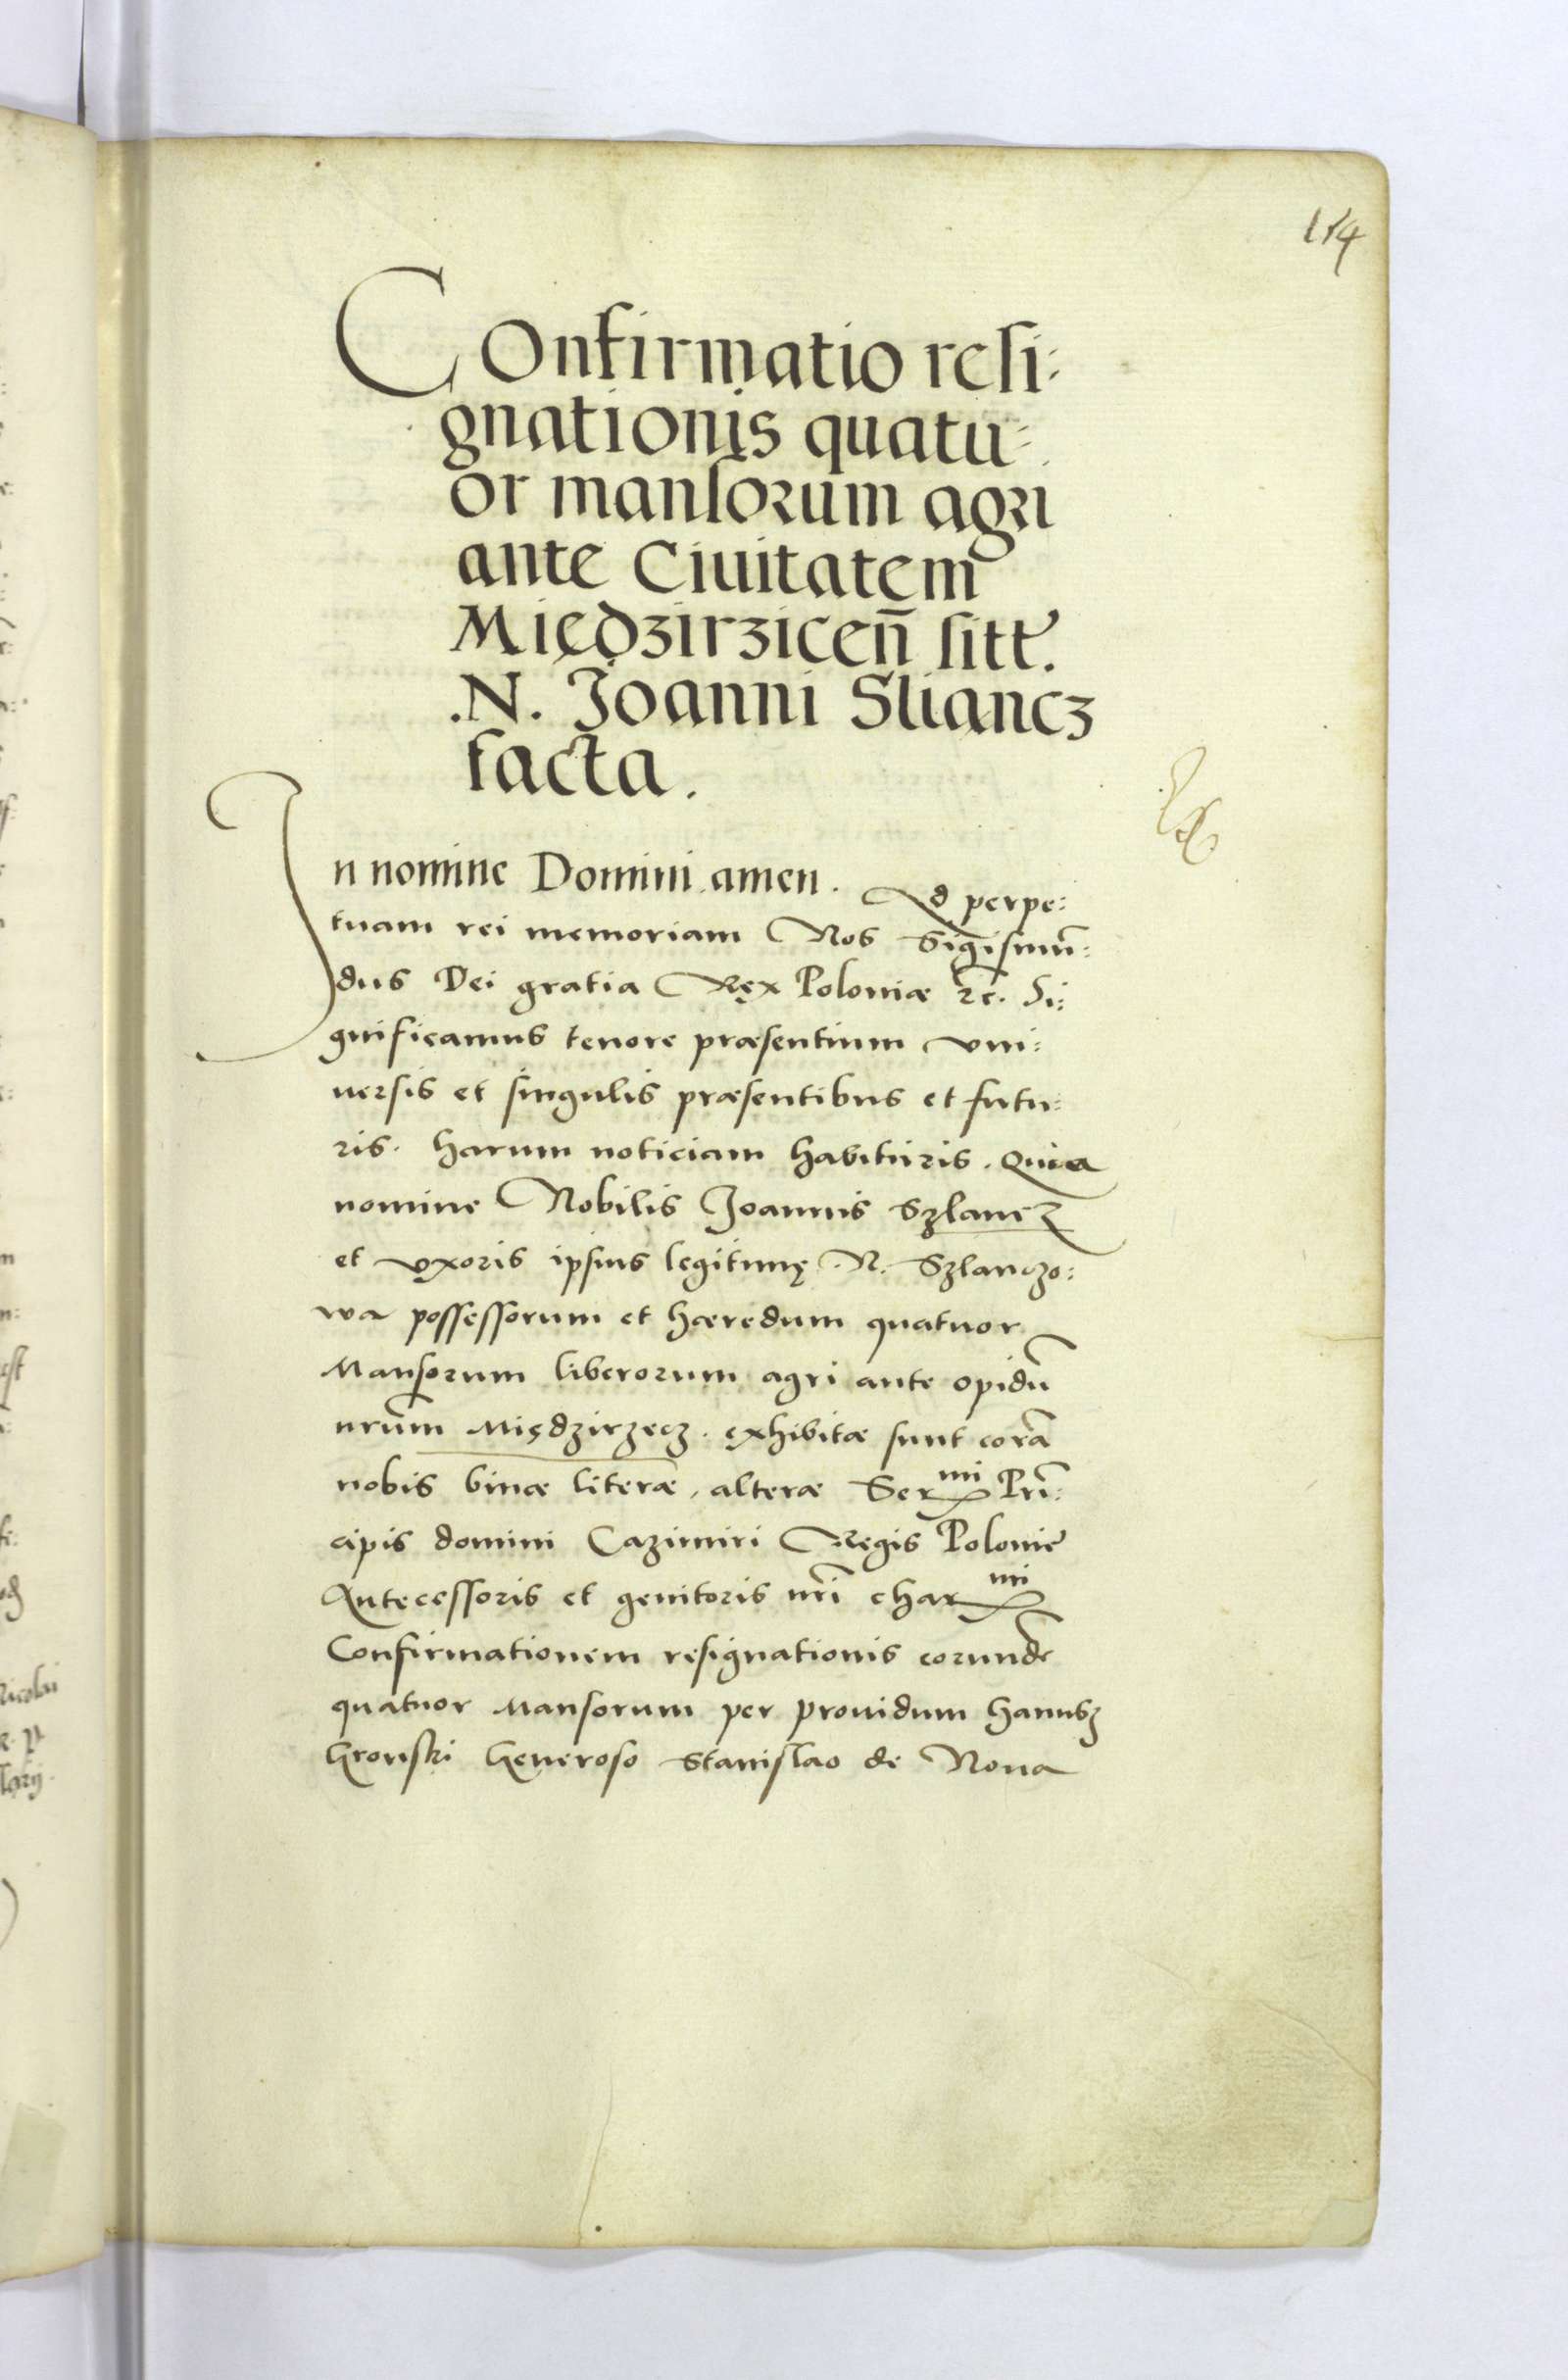 114
COnfirmatio resi:
gnationis quatu:
or mansorum agri
ante Ciuitatem
Międzirzicen̄ sitt.
.N. Joanni Sliancz
facta.
In nomine Domini amen. Ad perpe:
tuam rei memoriam Nos Sigismun̄:
dus Dei gratia Rex Poloniæ etc. Si:
gnificamus tenore præsentium vni:
uersis et singulis præsentibus et futu:
ris. harum noticiam habituris. Quia
nomine Nobilis Joannis Szlancz
et vxoris ipsius legitimę .N. Szlanczo:
wa possessorum et hæredum quatuor
Mansorum liberorum agri ante opidū
nr̄um Międzirzecz. exhibitæ sunt corā
nobis binæ literæ, alteræ Ser^mi Prī:
cipis domini Cazimiri Regis Polonię
Antecessoris et genitoris nr̄i char^mi
Confirmationem resignationis eorundē
quatuor Mansorum per prouidum Hanusz
Gronski Generoso Stanislao de Noua